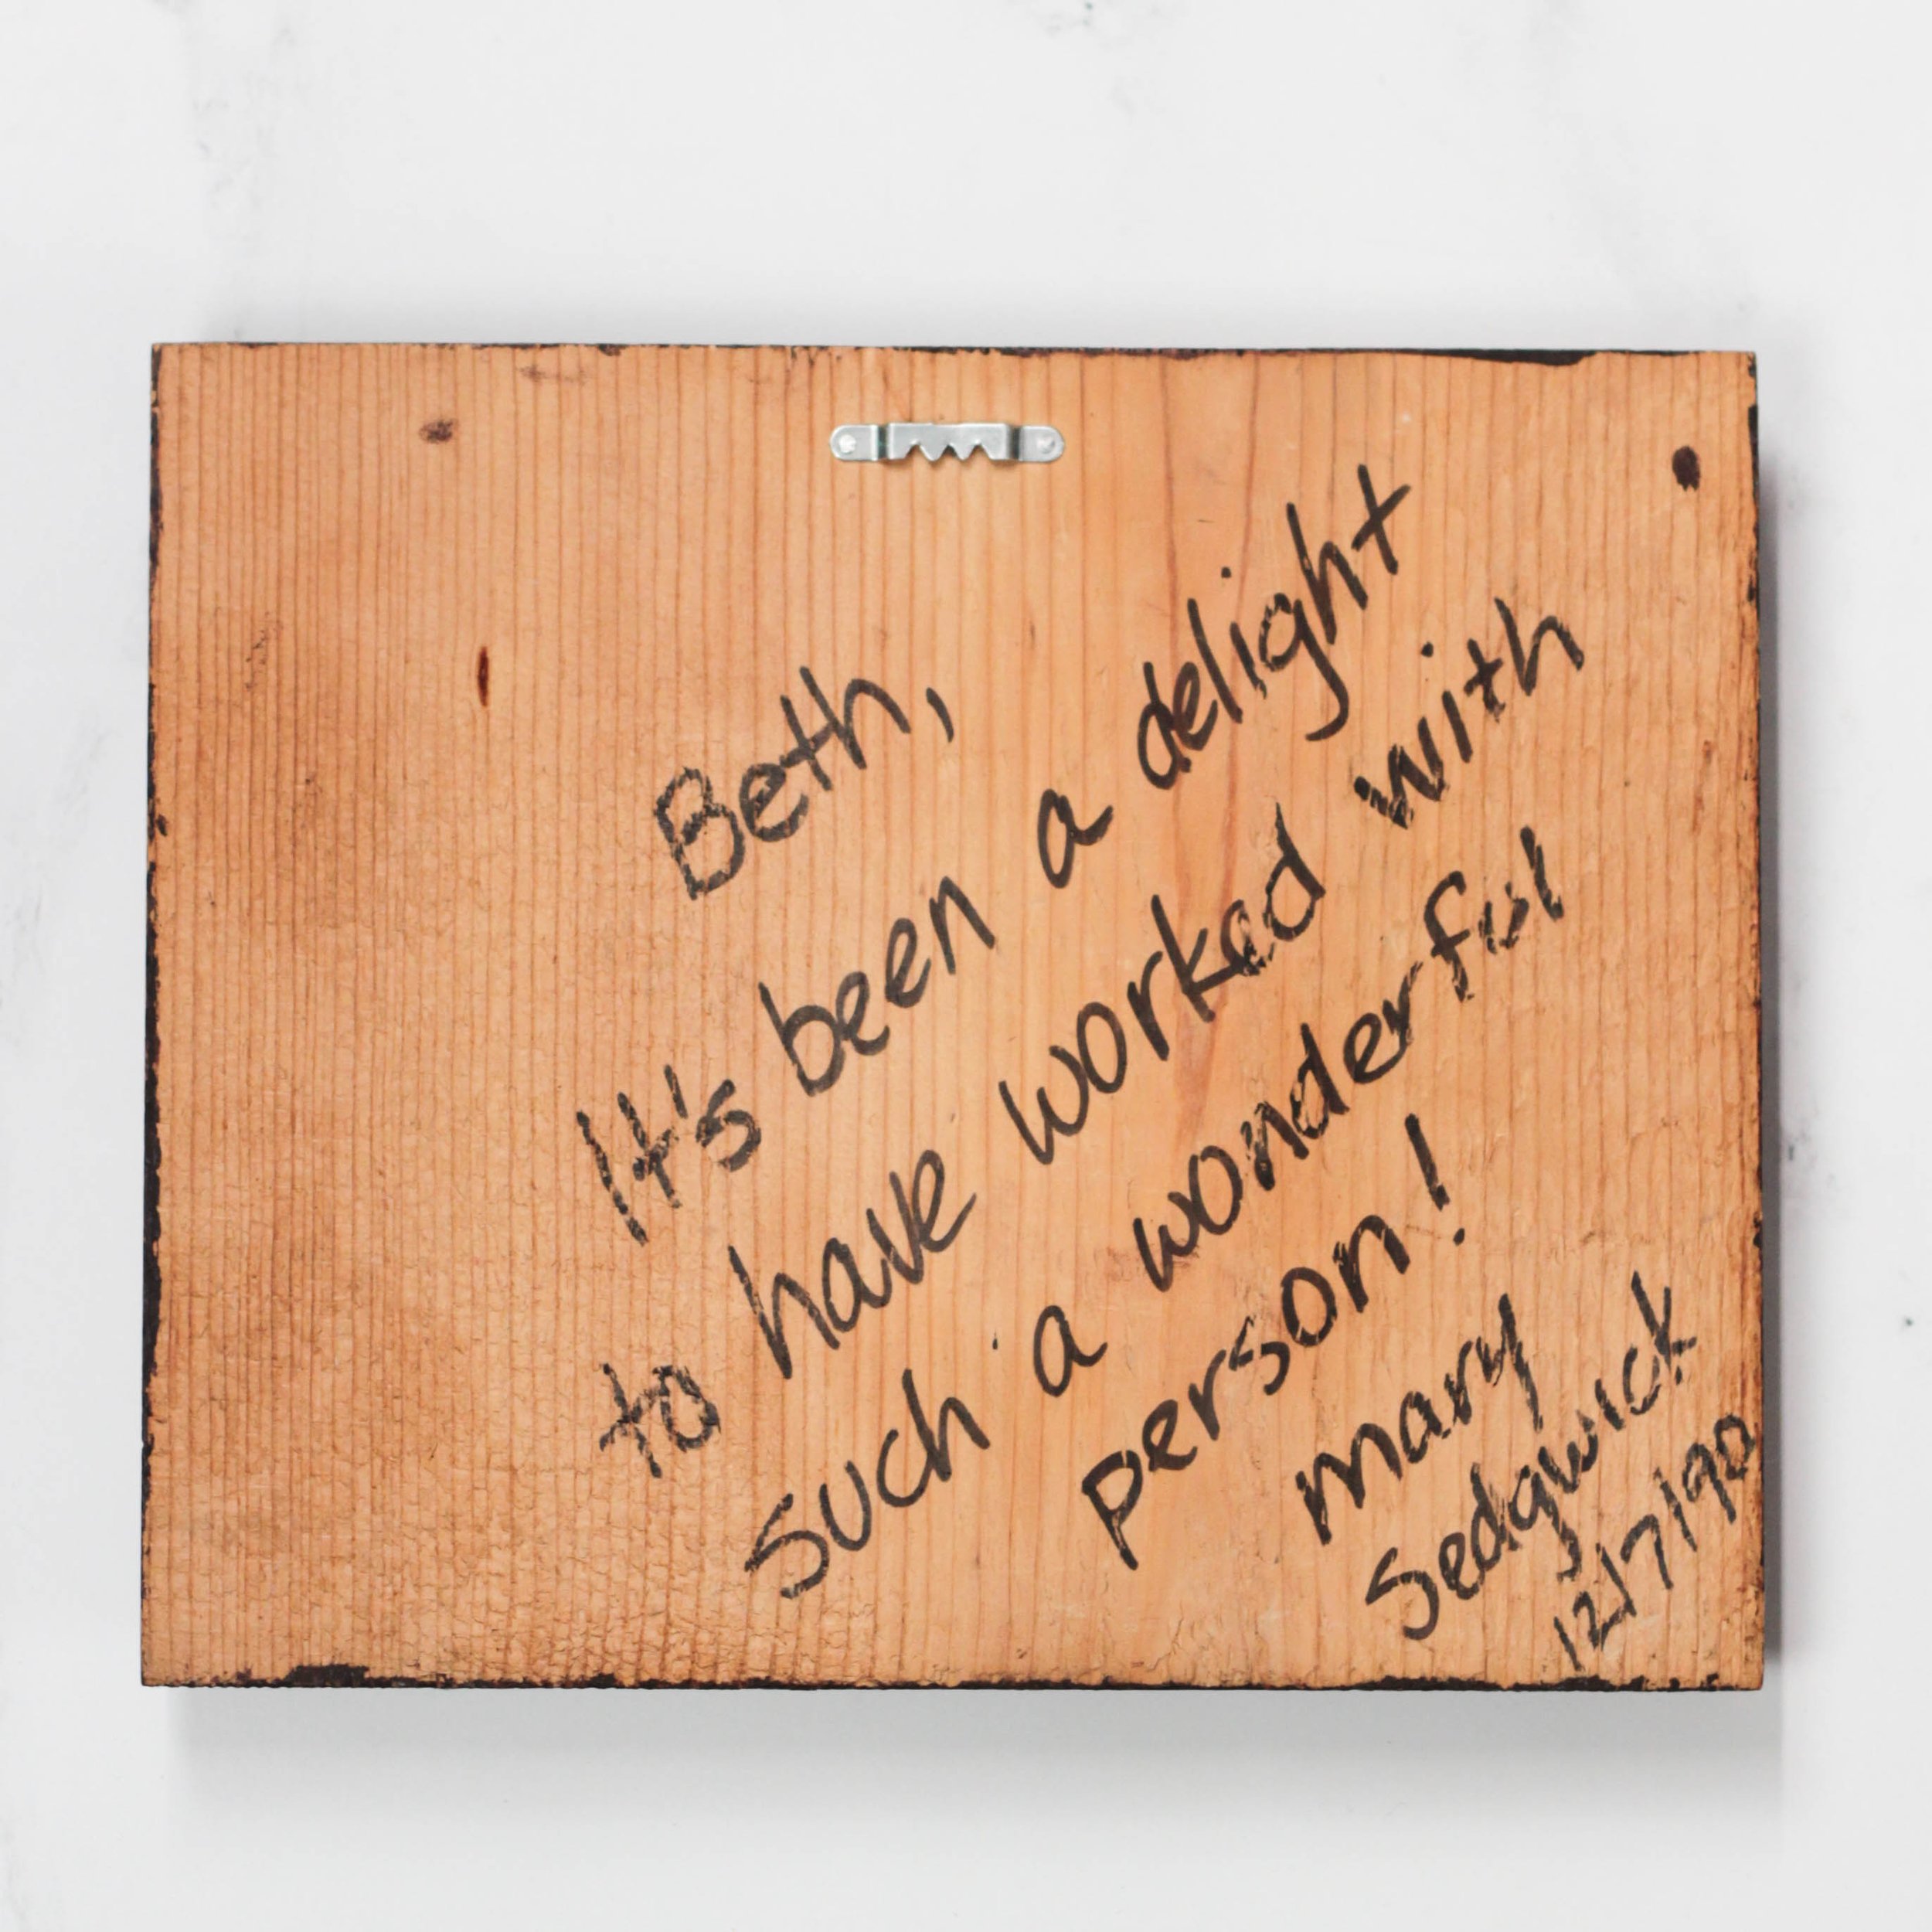 Beth,
It's been a delight
to have worked with
such a wonderful
person!
Mary
Sedgwick
12/7/90